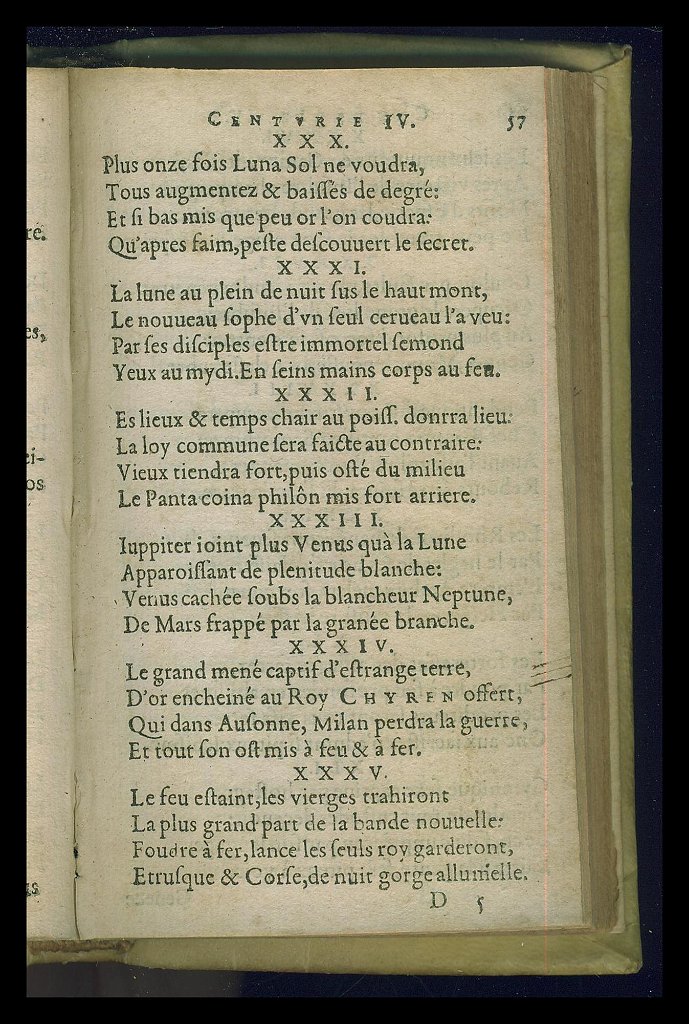 re.
es,
ei-
os
CENTVRIE IV. 57
XXX.
Plus onze fois Luna Sol ne voudra,
Tous augmentez & baiſſés de degré:
Et ſi bas mis que peu or l'on coudra:
Qu'apres faim,peſte deſcouuert le ſecret.
XXXI.
La lune au plein de nuit ſus le haut mont,
Le nouueau ſophe d'vn ſeul cerueau l'a veu:
Par ſes diſciples eſtre immortel ſemond
Yeux au mydi.En ſeins mains corps au feu.
XXXII.
Es lieux & temps chair au poiſſ. donrra lieu:
La loy commune ſera faicte au contraire:
Vieux tiendra fort,puis oſté du milieu
Le Panta coina philôn mis fort arriere.
XXXIII.
Iuppiter ioint plus Venus quà la Lune
Apparoiſſant de plenitude blanche:
Venus cachée ſoubs la blancheur Neptune,
De Mars frappé par la granée branche.
XXXIV.
Le grand mené captif d'eſtrange terre,
D'or encheiné au Roy CHYREN offert,
Qui dans Auſonne, Milan perdra la guerre,
Et tout ſon oſt mis à feu & à fer.
XXXV.
Le feu eſtaint,les vierges trahiront
La plus grand part de la bande nouuelle:
Foudre à fer,lance les ſeuls roy garderont,
Etruſque & Corſe,de nuit gorge allumelle.
D 5